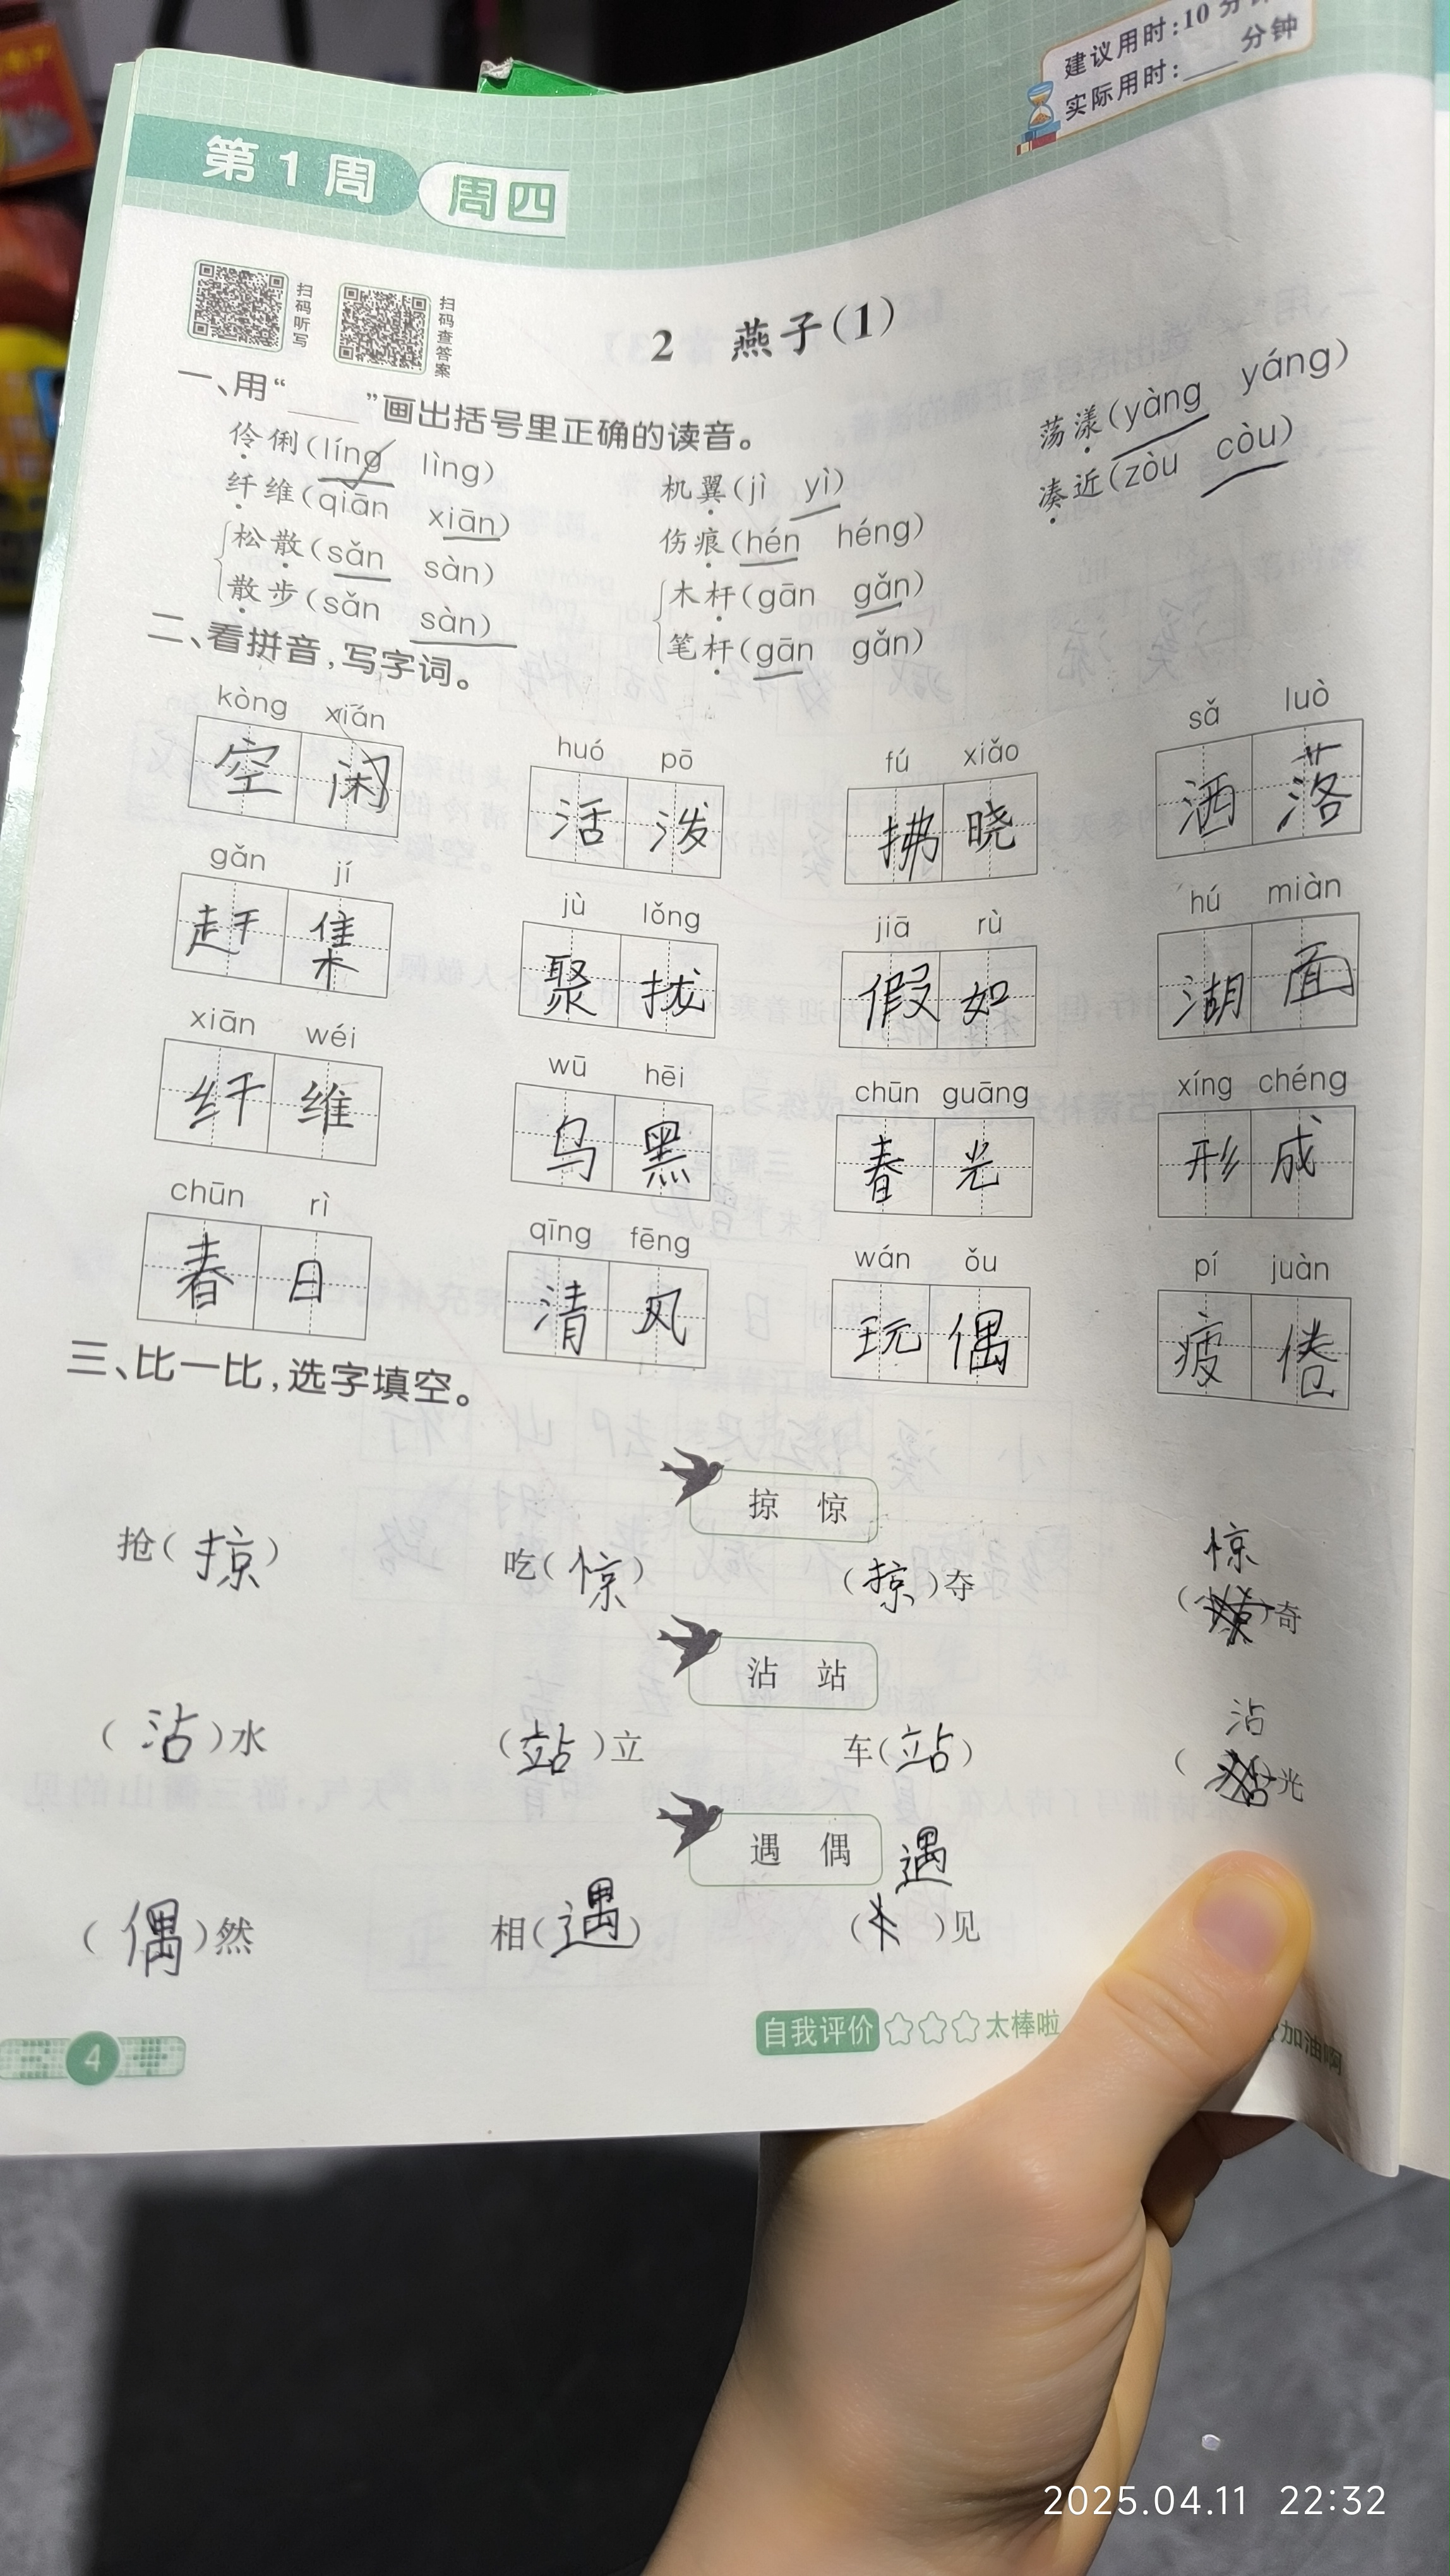 建议用时:10分钟
实际用时:____分钟
第1周 周四
扫码听写
扫码查答案
2 燕子(1)
一、用“____”画出括号里正确的读音。
伶俐(líng lìng)
机翼(jì yì)
荡漾(yàng yáng)
纤维(qiān xiān)
伤痕(hén héng)
凑近(zòu còu)
松散(sǎn sàn)
木杆(gān gǎn)
散步(sǎn sàn)
笔杆(gān gǎn)
二、看拼音,写字词。
kòng xián huó pō fú xiǎo sǎ luò
空闲 活泼 拂晓 洒落
gǎn jí jù lǒng jiā rù hú miàn
赶集 聚拢 假如 湖面
xiān wéi wū hēi chūn guāng xíng chéng
纤维 乌黑 春光 形成
chūn rì qīng fēng wán ǒu pí juàn
春日 清风 玩偶 疲倦
三、比一比,选字填空。
掠 惊
抢(掠) 吃(惊) (掠)夺 (惊)奇
沾 站
(沾)水 (站)立 车(站) (沾)光
遇 偶
(偶)然 相(遇) (遇)见
4
自我评价 太棒啦 加油啊
2025.04.11 22:32